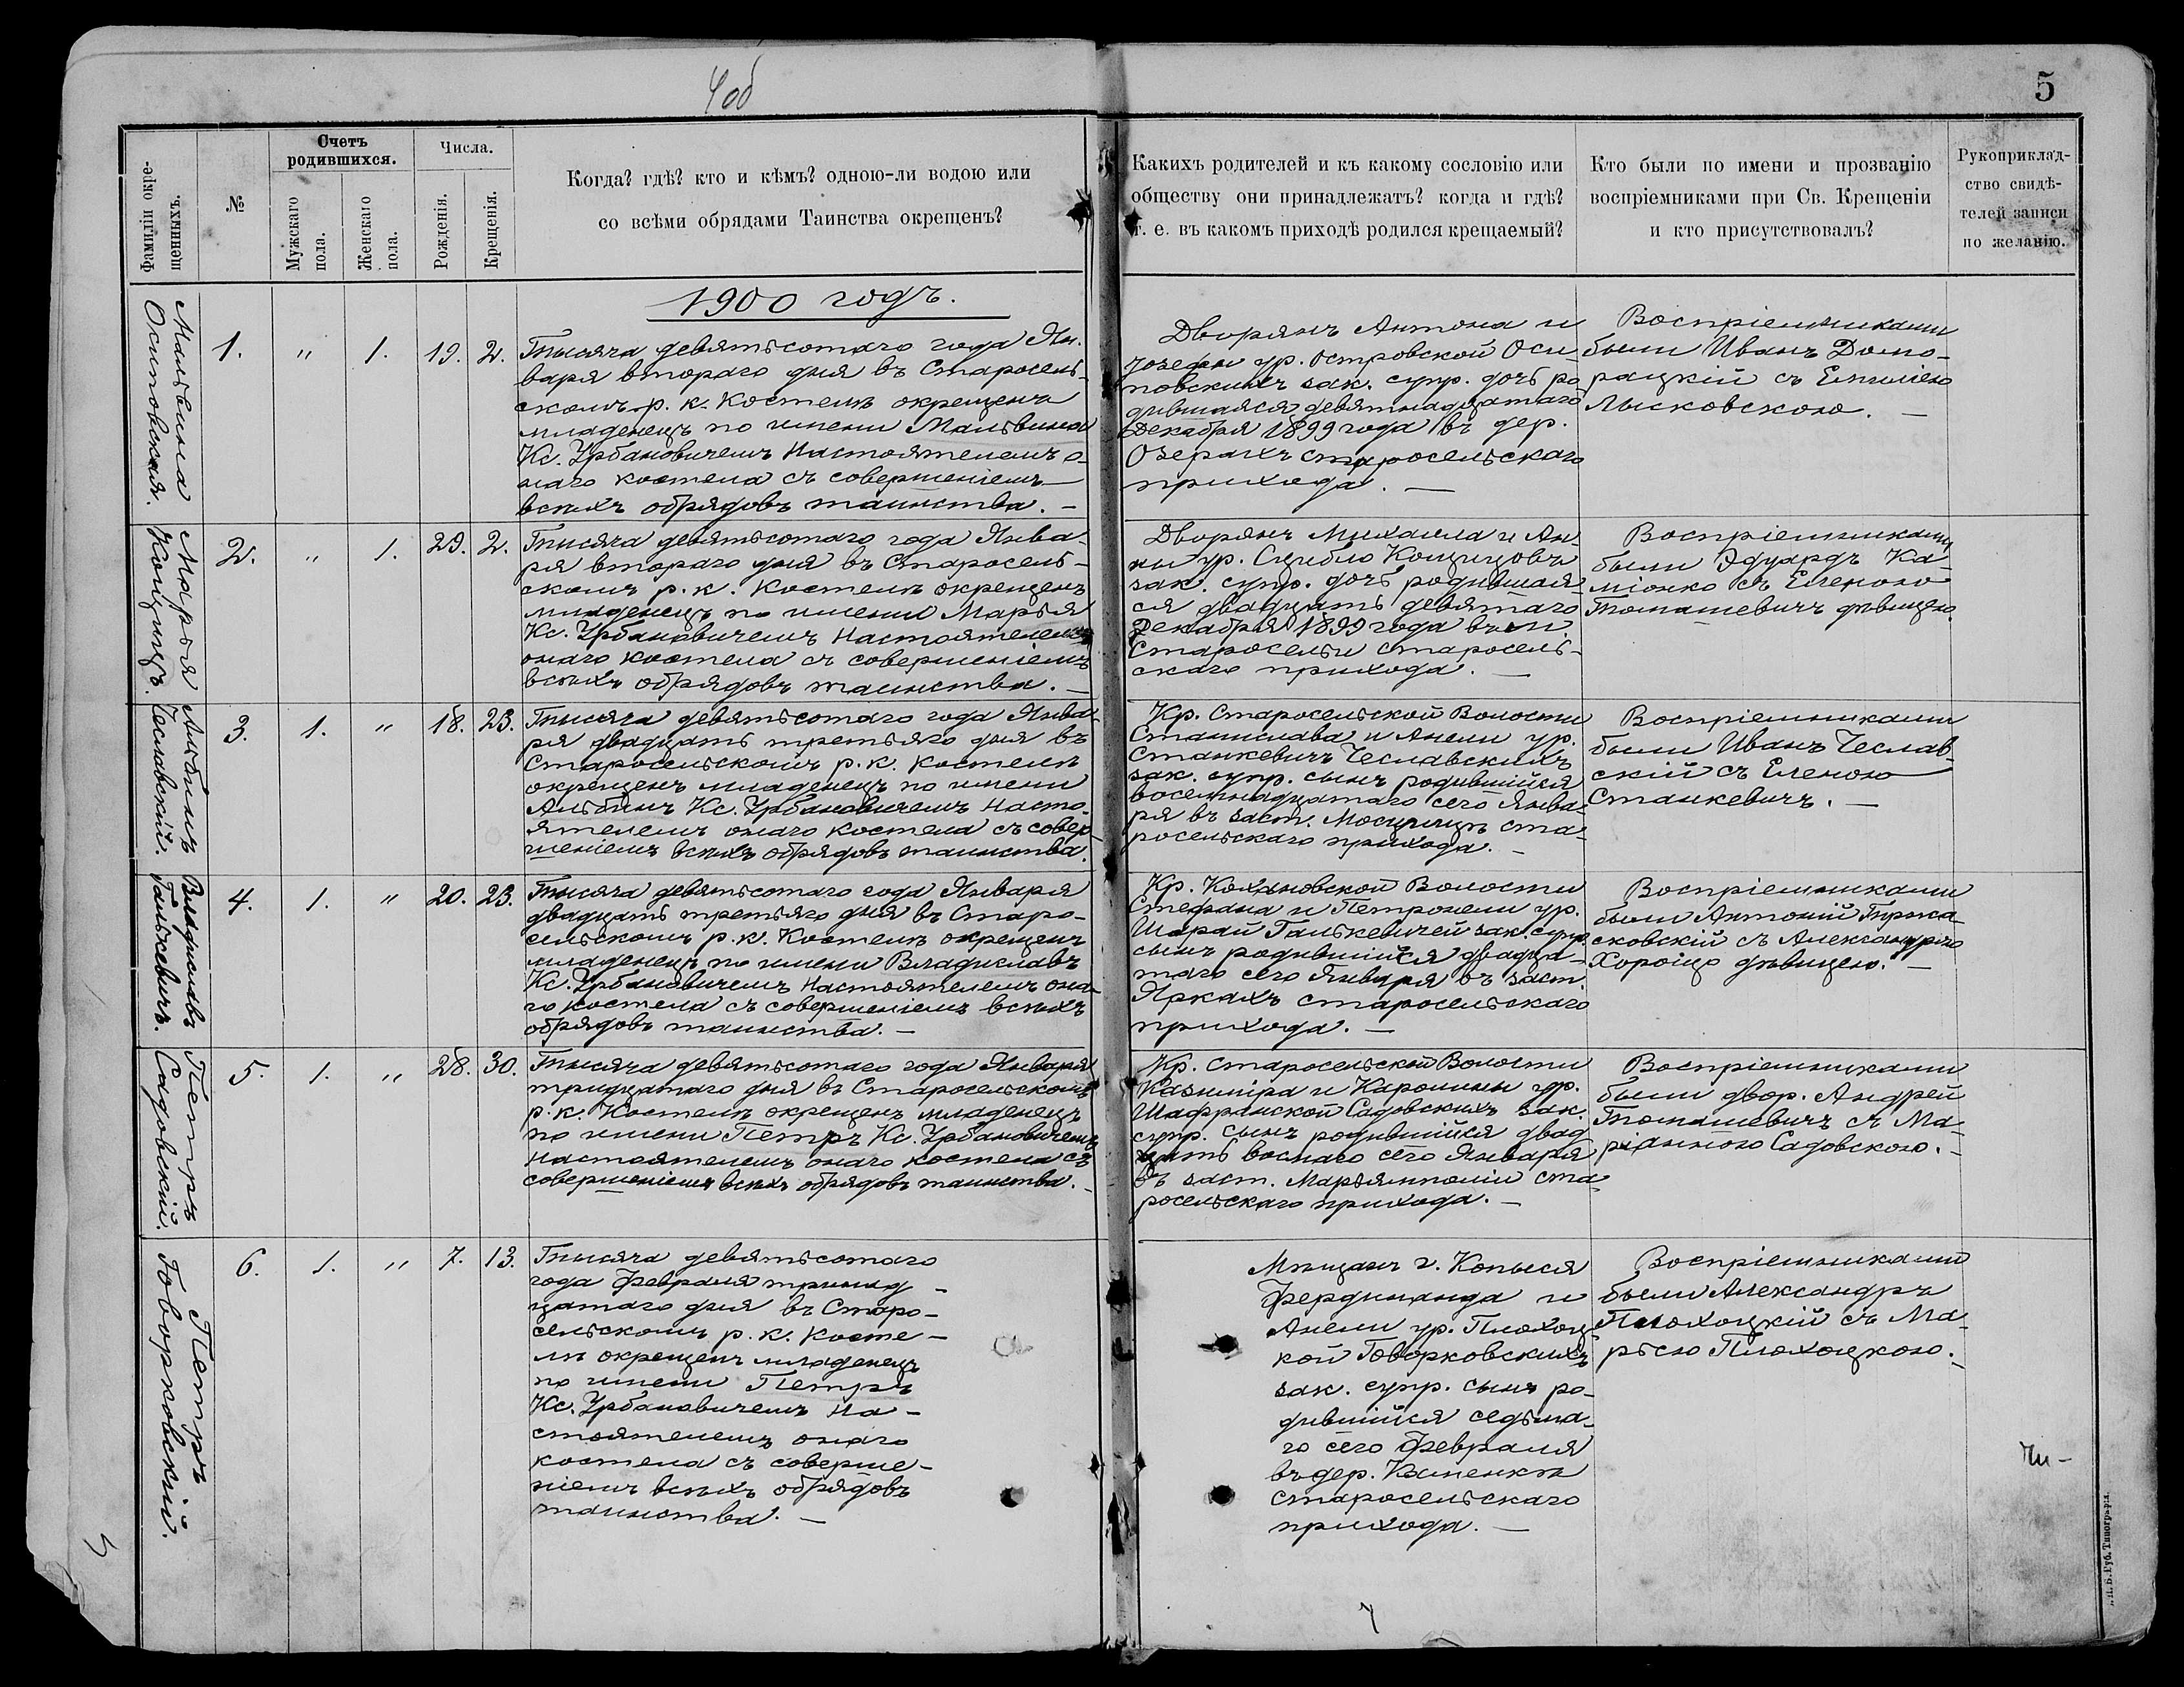 4об
5
Фамиліи окре-
щенныхъ.
№
Счетъ
родившихся.
Мужскаго
пола.
Женскаго
пола.
Числа.
Рожденія.
Крещенія.
Когда? гдѣ? кто и кѣмъ? одною-ли водою или
со всѣми обрядами Таинства окрещенъ?
Какихъ родителей и къ какому сословію или
обществу они принадлежатъ? когда и гдѣ?
т. е. въ какомъ приходѣ родился крещаемый?
Кто были по имени и прозванію
воспріемниками при Св. Крещеніи
и кто присутствовалъ?
Рукоприклад-
ство свидѣ-
телей записи
по желанію.
1900 годъ.
Мальвина
Осиповская.
1. " 1. 19. 2.
Тысяча девятьсотаго года Ян-
варя втораго дня въ Старосель-
скомъ р. к. Костелѣ окрещенъ
младенецъ по имени Мальвина
Кс. Урбановичемъ Настоятелемъ о-
наго костела съ совершеніемъ
всѣхъ обрядовъ таинства. —
Дворянъ Антона и
Іозефы ур. Островской Оси-
повскихъ зак. супр. дочь ро
дившаяся девятнадцатаго
Декабря 1899 года въ дер.
Озерахъ старосельскаго
прихода. —
Воспріемниками
были Иванъ Домо-
рацкій съ Емиліею
Лысковскою. —
Марья
Кощицъ.
2. " 1. 29. 2.
Тысяча девятьсотаго года Янва-
ря втораго дня въ Старосель-
скомъ р. к. Костелѣ окрещенъ
младенецъ по имени Марья
Кс. Урбановичемъ Настоятелемъ
онаго костела съ совершеніемъ
всѣхъ обрядовъ таинства. —
Дворянъ Михаила и Ан-
ны ур. Сцибло Кощицовъ
зак. супр. дочь родившая-
ся двадцать девятаго
Декабря 1899 года въ м.
Старосельи старосель-
скаго прихода. —
Воспріемниками
были Эдуардъ Ка-
міонко съ Еленою
Томашевичъ дѣвицею.
Альбинъ
Чеславскій.
3. 1. " 18. 23.
Тысяча девятьсотаго года Янва-
ря двадцать третьяго дня въ
Старосельскомъ р. к. Костелѣ
окрещенъ младенецъ по имени
Альбинъ Кс. Урбановичемъ Насто-
ятелемъ онаго костела съ совер-
шеніемъ всѣхъ обрядовъ таинства.
Кр. Старосельской Волости
Станислава и Анели ур.
Станкевичъ Чеславскихъ
зак. супр. сынъ родившійся
восемнадцатаго сего Янва-
ря въ заст. ста-
росельскаго прихода. —
Воспріемниками
были Иванъ Чеслав-
скій съ Еленою
Станкевичъ. —
Владиславъ
Галькевичъ.
4. 1. " 20. 23.
Тысяча девятьсотаго года Января
двадцать третьяго дня въ Старо-
сельскомъ р. к. Костелѣ окрещенъ
младенецъ по имени Владиславъ
Кс. Урбановичемъ Настоятелемъ она-
го костела съ совершеніемъ всѣхъ
обрядовъ таинства. —
Кр. Кохановской Волости
Стефана и Петронели ур.
Шарай Галькевичей зак. супр.
сынъ родившійся двадца-
таго сего Января въ заст.
Яркахъ старосельскаго
прихода. —
Воспріемниками
были Антоній
сковскій съ Александрою
Хороіцо дѣвицею. —
Петръ
Садовскій.
5. 1. " 28. 30.
Тысяча девятьсотаго года Января
тридцатаго дня въ Старосельскомъ
р. к. Костелѣ окрещенъ младенецъ
по имени Петръ Кс. Урбановичемъ
Настоятелемъ онаго костела съ
совершеніемъ всѣхъ обрядовъ таинства. —
Кр. Старосельской Волости
Казиміра и Каролины ур.
Шафранской Садовскихъ зак.
супр. сынъ родившійся двад
цать восьмаго сего Января
въ заст. Марьямполіи ста-
росельскаго прихода. —
Воспріемниками
были двор. Андрей
Томашевичъ съ Ма-
ріанною Садовскою. —
Петръ
Говорковскій.
6. 1. " 7. 13.
Тысяча девятьсотаго
года Февраля тринад-
цатаго дня въ Старо-
сельскомъ р. к. Косте-
лѣ окрещенъ младенецъ
по имени Петръ
Кс. Урбановичемъ На-
стоятелемъ онаго
костела съ соверше-
ніемъ всѣхъ обрядовъ
таинства. —
Мѣщанъ г. Копыся
Фердинанда и
Анели ур. Плохоц-
кой Говорковскихъ
зак. супр. сынъ ро-
дившійся седьма-
го сего Февраля
въ дер. Каменкѣ
старосельскаго
прихода. —
Воспріемниками
были Александръ
Плохоцкій съ Ма-
рьею Плохоцкою. —
Губ. Типографія.